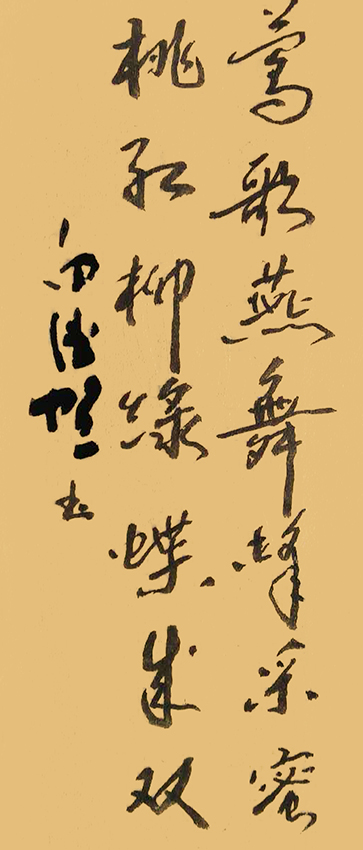 莺歌燕舞蜂采蜜
桃红柳绿蝶成双
书